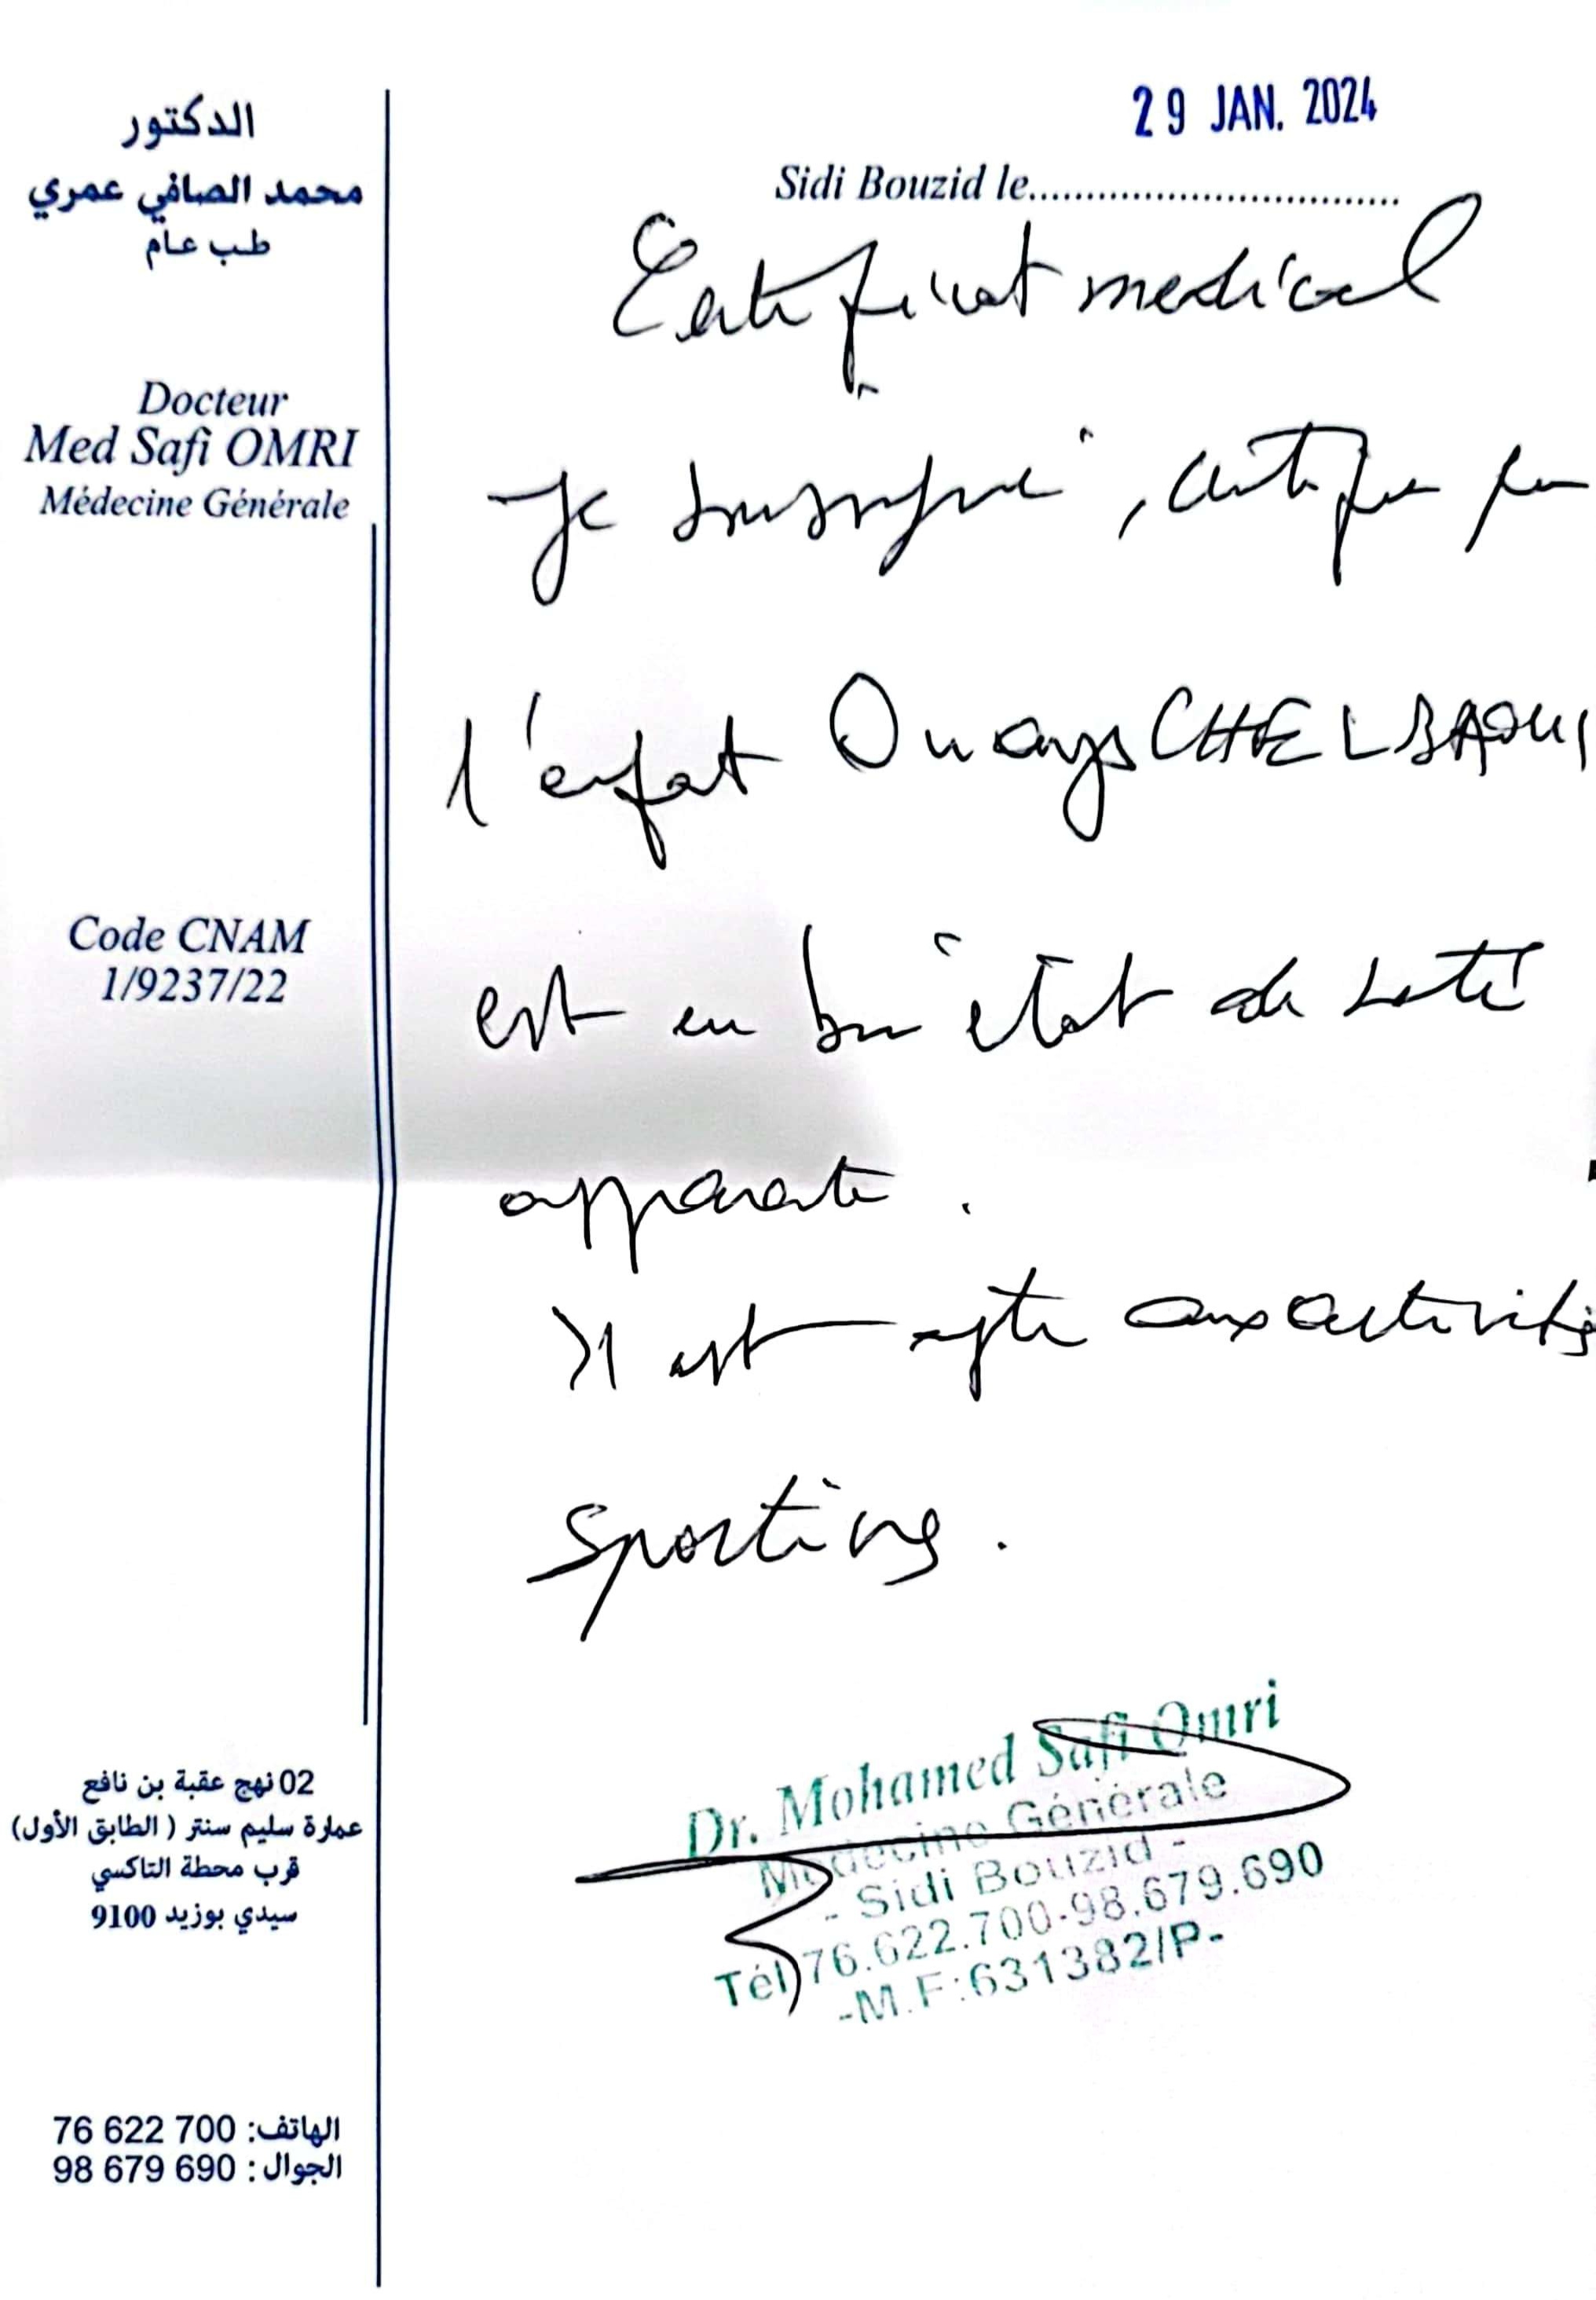 الدكتور
محمد الصافي عمري
طب عام
Docteur
Med Safi OMRI
Médecine Générale
Code CNAM
1/9237/22
02 نهج عقبة بن نافع
عمارة سليم سنتر ( الطابق الأول)
قرب محطة التاكسي
سيدي بوزيد 9100
الهاتف: 76 622 700
الجوال : 98 679 690
29 JAN. 2024
Sidi Bouzid le
Certificat medical
Je soussigné, certifie que
l'enfant CHELBAOUI
est en bon état de santé
apparente .
Il est apte aux activités
sportives .
Dr. Mohamed Safi Omri
Médecine Générale
- Sidi Bouzid -
Tél 76.622.700-98.679.690
-M.F:631382/P-